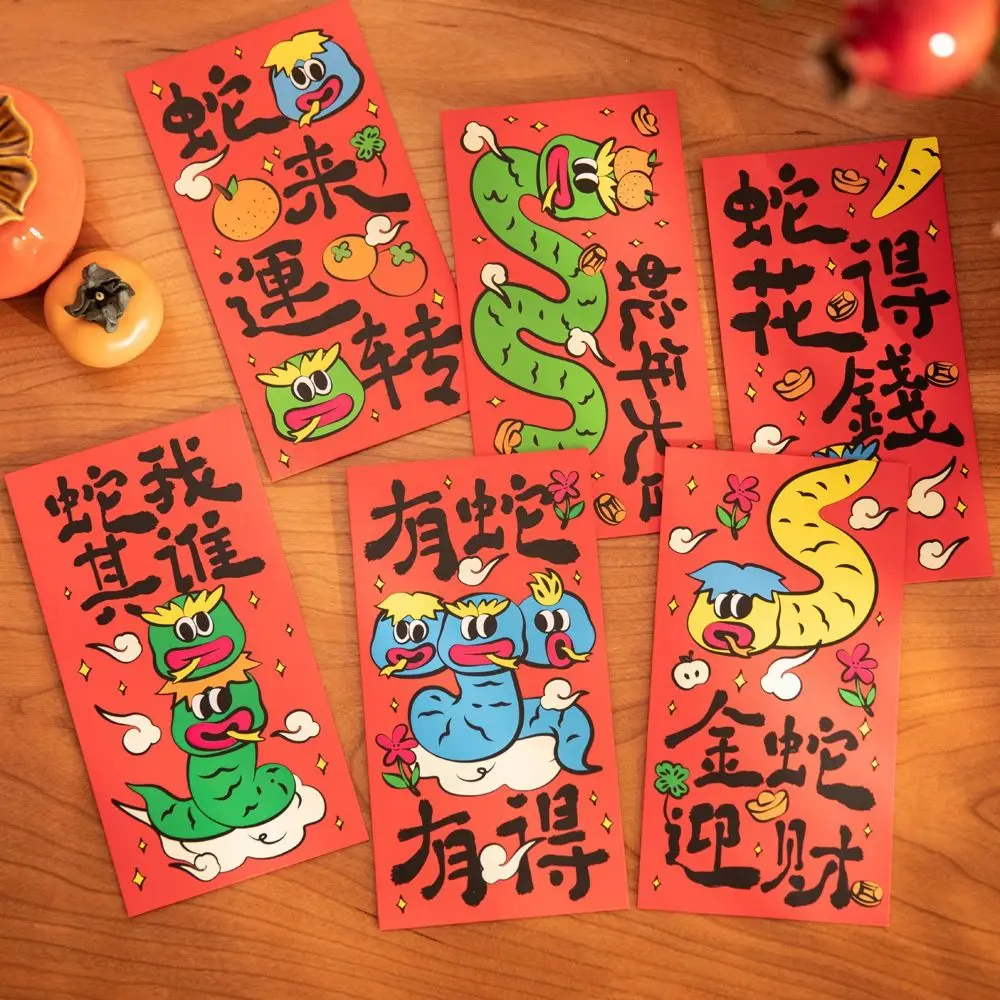 蛇
来
運
转
蛇年大
蛇得
花錢
蛇我
其谁
有蛇
有得
金蛇
迎财